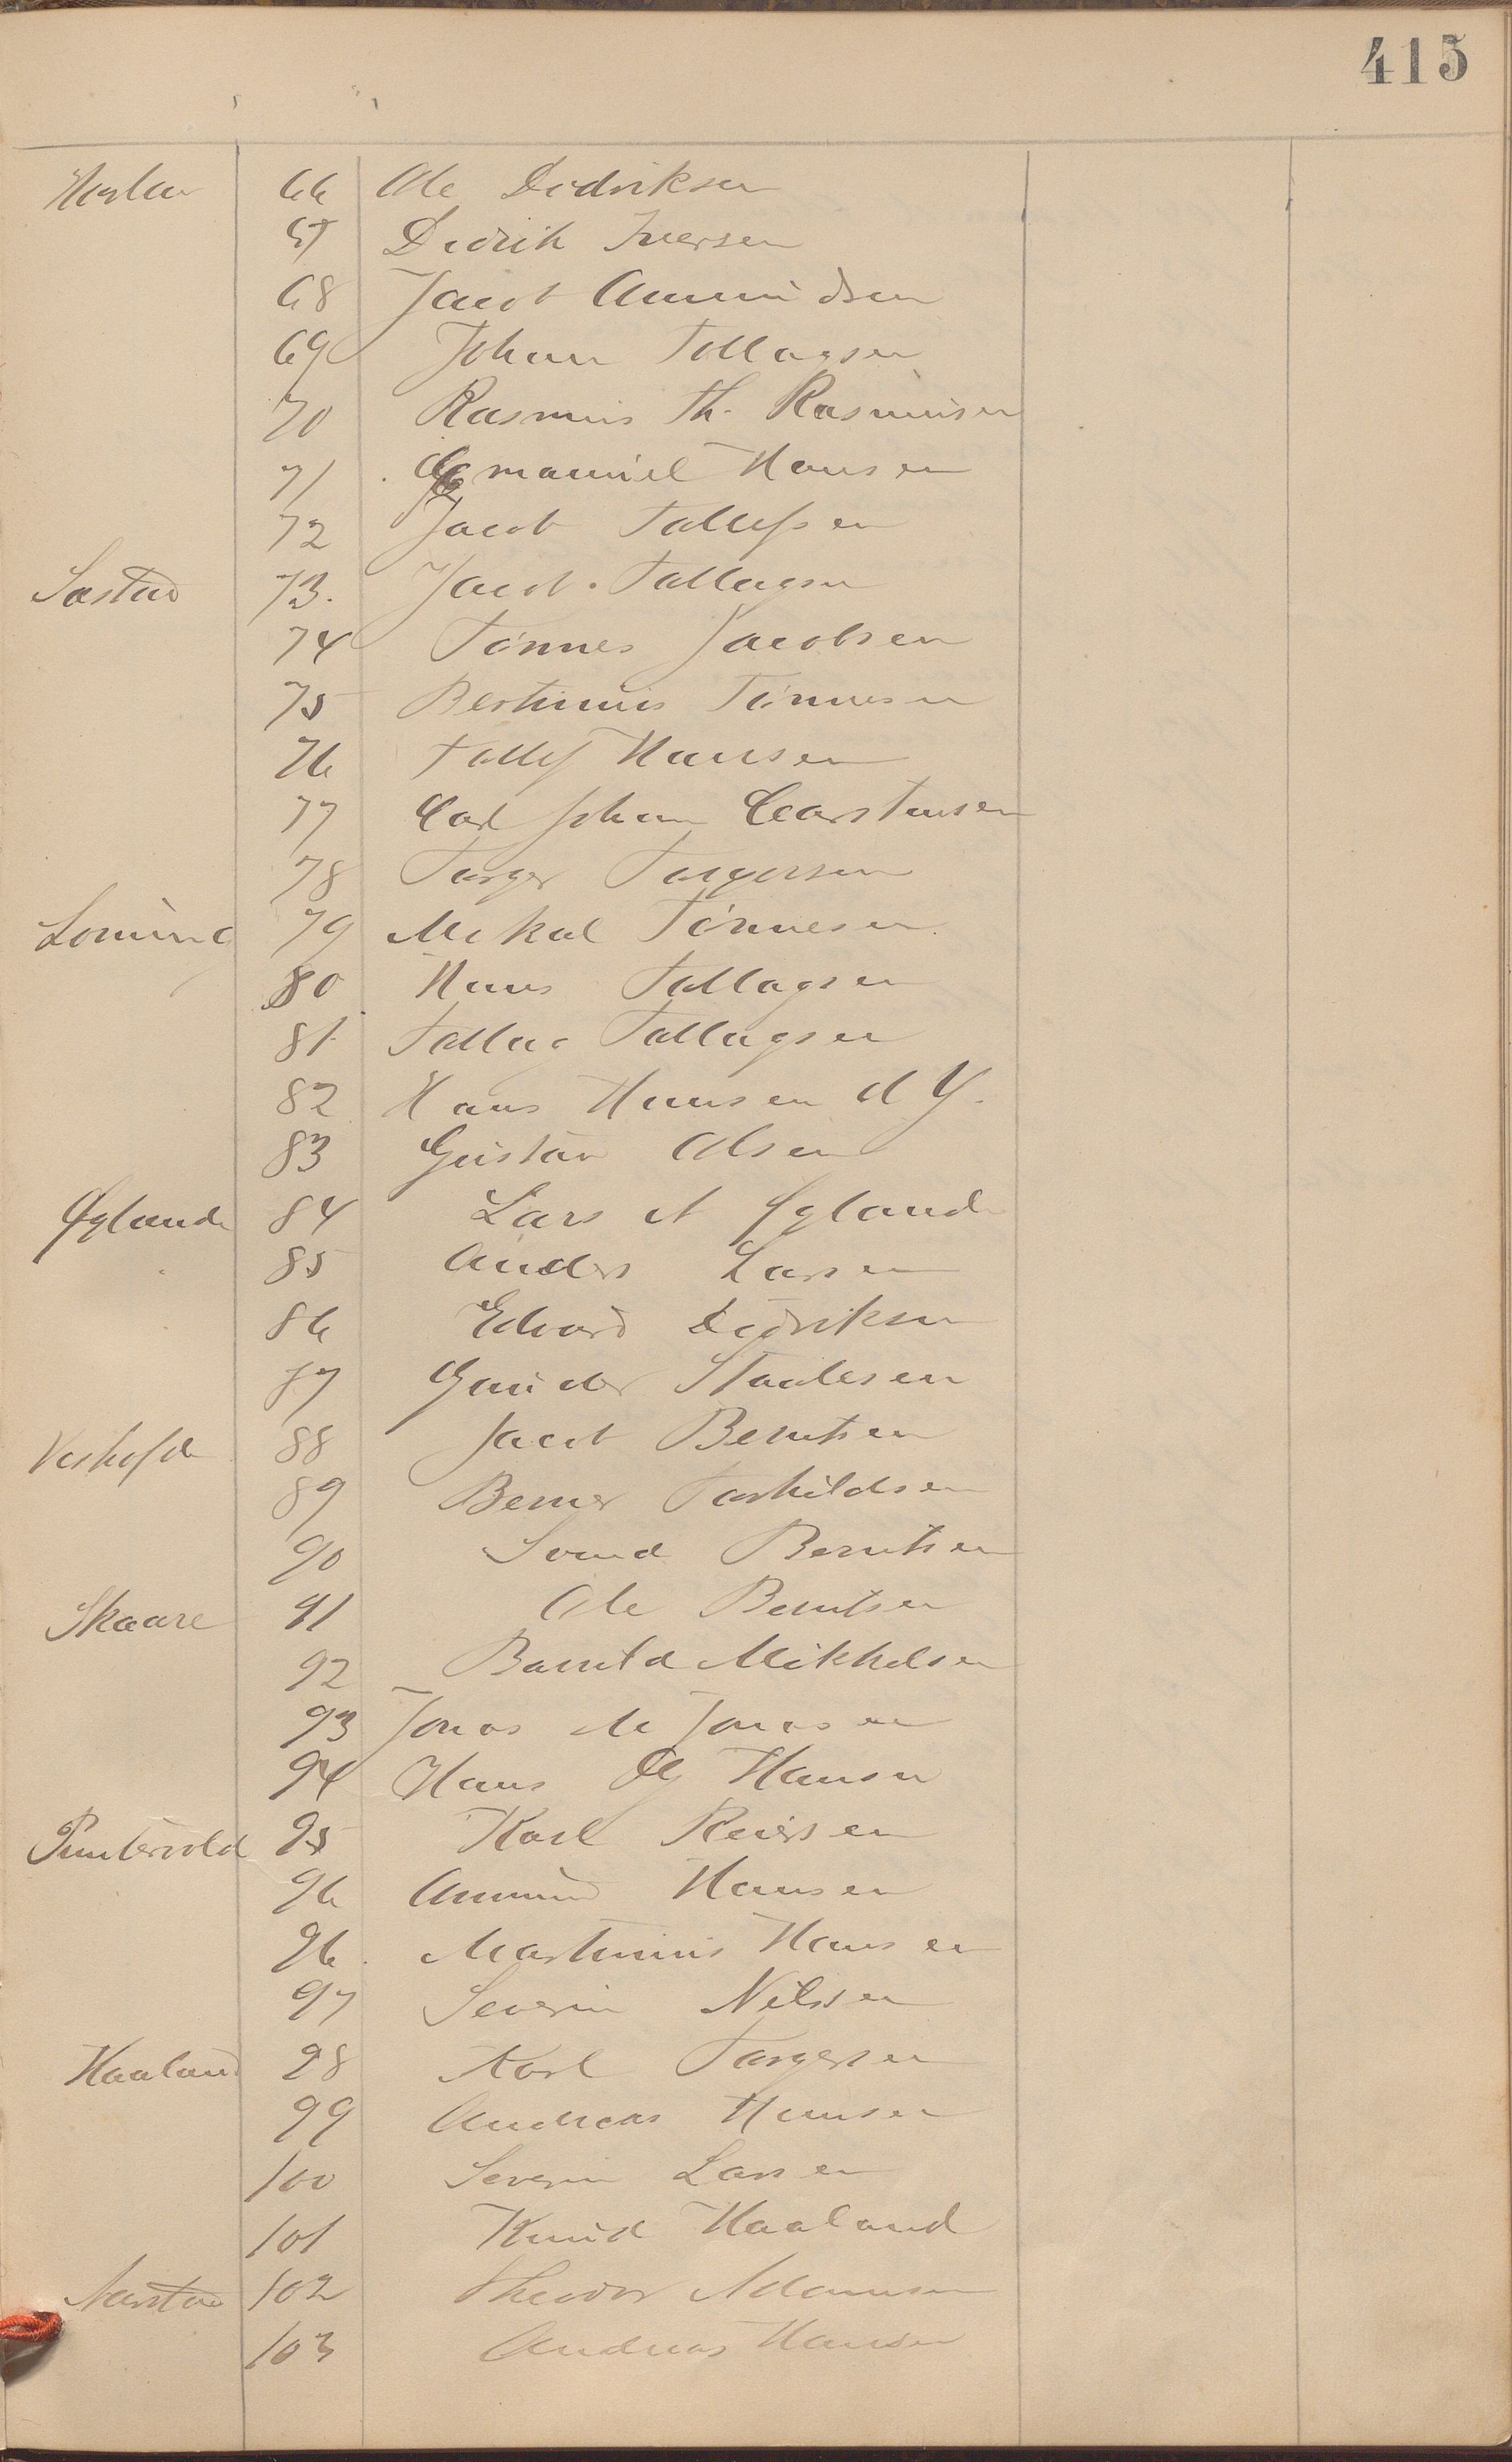 415
66 Ole Didriksen
67 Didrik Iversen
68 Jacob Aamundsen
69 Johan Tollagsen
70 Rasmus Th. Rasmusen
71 Emanuel Hansen
72 Jacob Tollefsen
Søstad 73. Jacob Tollagsen
74 Tönnes Jacobsen
75 Bertinius Tönnesen
76 Tollef Hansen
77 Carl Johan Carstensen
78 Targer Targersen
79 Mikal Tönnesen
80 Hans Tollagsen
81 Tollag Tollagsen
82 Hans Hansen d Y.
83 Gustav Olsen
Øgland 84 Lars A Øgland
85 Anders Larsen
86 Edvard Didriksen
87 Gunder Staalesen
88 Jacob Berntsen
89 Berner Torkildsen
90 Svend Berntsen
Skaare 91 Ole Berntsen
92 Mikkelsen
93 Jonas M Jonasen
94 Hans Hansen
Puntervold 95 Karl Reiersen
96 Aamund Hansen
96 Martinius Hansen
97 Severin Nilsen
Haaland 98 Karl Targersen
99 Andreas Hansen
100 Severin Larsen
101 Knud Haaland
102 Theodor Adamsen
103 Andreas Hansen